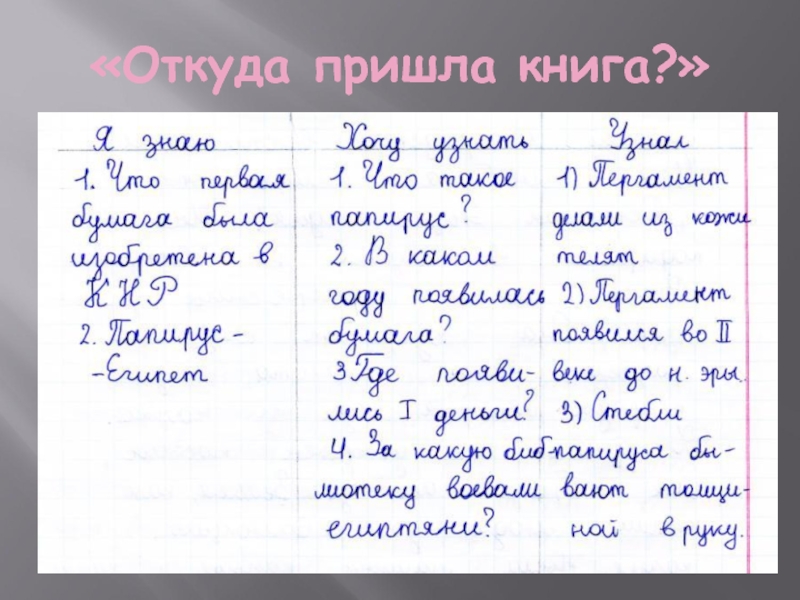 «Откуда пришла книга?»
Я знаю
1. Что первая
бумага была
изобретена в
КНР
2. Папирус -
-Египет
Хочу узнать
1. Что такое
папирус?
2. В каком
году появилась
бумага?
3. Где появи-
лись I деньги?
4. За какую биб-
лиотеку воевали
египтяни?
Узнал
1) Пергамент
делали из кожи
телят
2) Пергамент
появился во II
веке до н. эры.
3) Стебли
папируса бы-
вают толщи-
ной в руку.